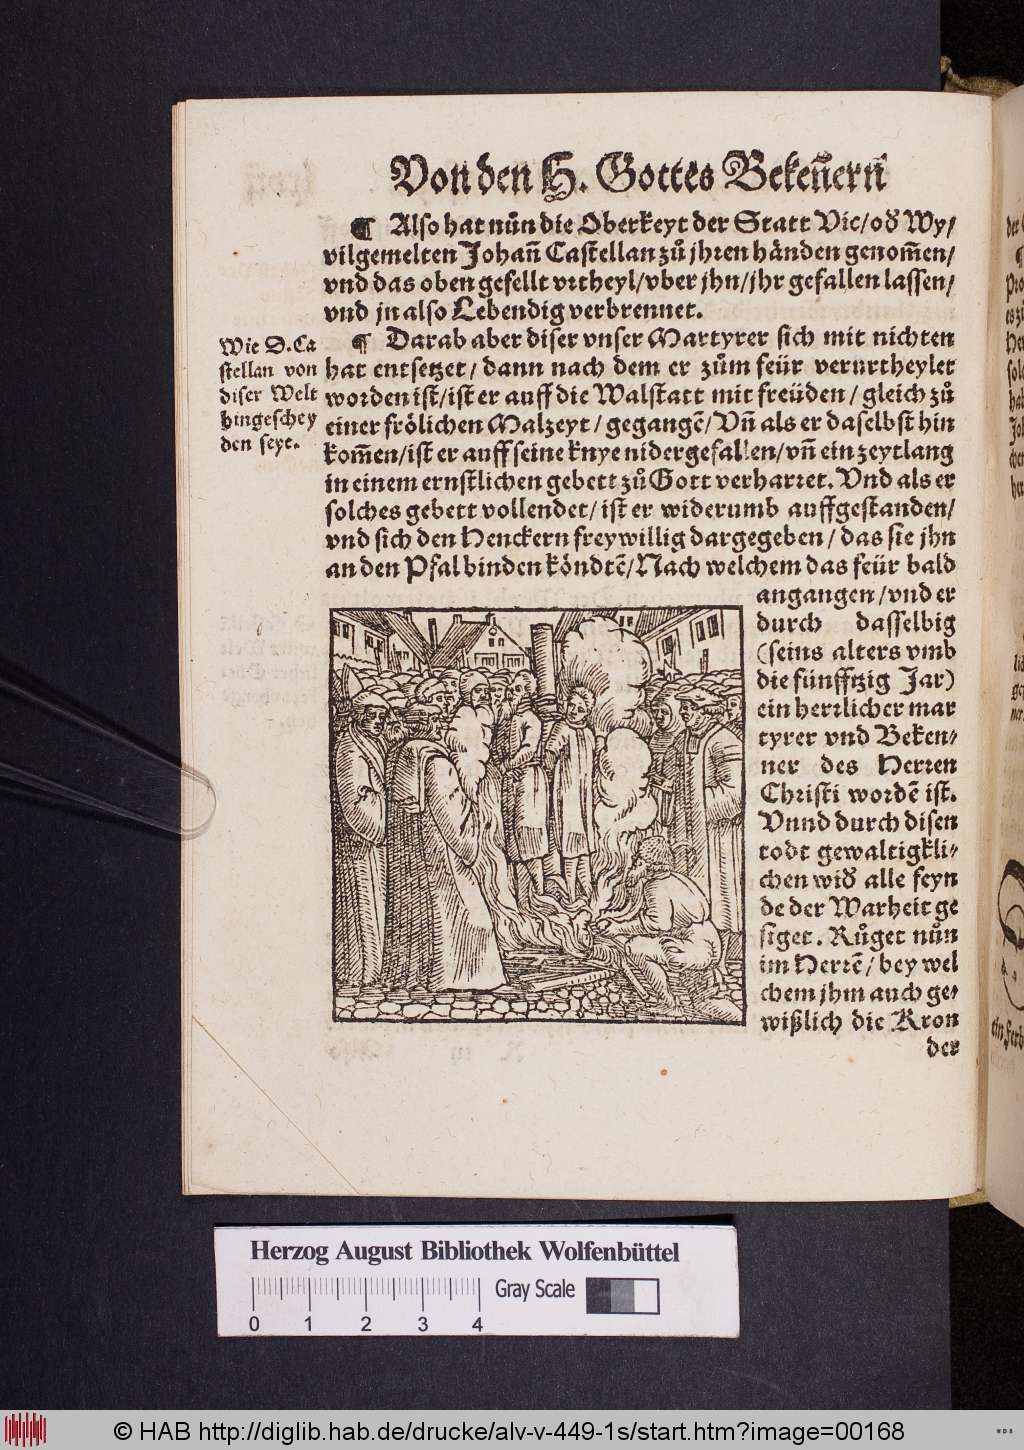 Von den H. Gottes Bekeñern
¶ Also hat nůn die Oberkeyt der Statt Vic/ od̕ Wy/
vilgemelten Johañ Castellan zů jhren händen genom̃en/
vnd das oben gesellt vrtheyl/ vber jhn/ jhr gefallen lassen/
vnd jn also Lebendig verbrennet.
¶ Darab aber diser vnser Martyrer sich mit nichten
hat entsetzet/ dann nach dem er zům feür verurtheylet
worden ist/ ist er auff die Walstatt mit freüden/ gleich zů
einer frölichen Malzeyt/ gegangẽ/ Vñ als er daselbst hin
kom̃en/ ist er auff seine knye nidergefallen/ vñ ein zeytlang
in einem ernstlichen gebett zů Gott verharret. Vnd als er
solches gebett vollendet/ ist er widerumb auffgestanden/
vnd sich den Henckern freywillig dargegeben/ das sie jhn
an den Pfal binden köndtẽ/ Nach welchem das feür bald
Wie D. Ca
stellan von
diser Welt
hingeschey
den seyt.
angangen/ vnd er
durch dasselbig
(seins alters vmb
die fünfftzig Jar)
ein herrlicher mar
tyrer vnd Beken/
ner des Herren
Christi wordẽ ist.
Vnnd durch disen
todt gewaltigkli/
chen wid̕ alle feyn
de der Warheit ge
siget. Růget nůn
im Herrẽ/ bey wel
chem jhm auch ge/
wißlich die Kron
der
Herzog August Bibliothek Wolfenbüttel
Gray Scale
0 1 2 3 4
© HAB http://diglib.hab.de/drucke/alv-v-449-1s/start.htm?image=00168